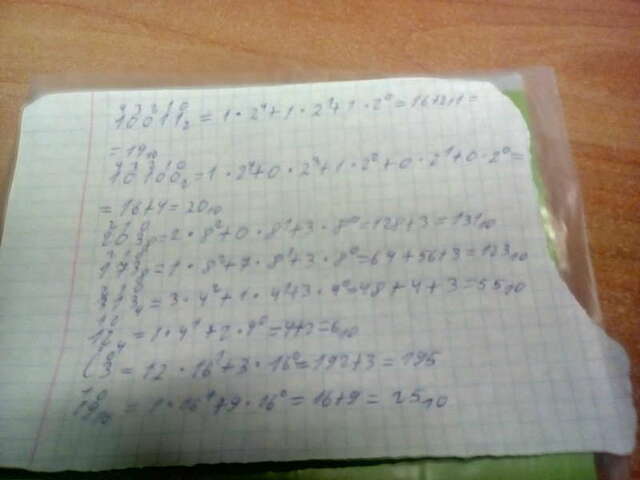 4 3 2 1 0
10011₂ = 1·2⁴+1·2¹+1·2⁰=16+2+1=
=19₁₀
4 3 2 1 0
10100₂=1·2⁴+0·2³+1·2²+0·2¹+0·2⁰=
=16+4=20₁₀
2 1 0
203₈=2·8²+0·8¹+3·8⁰=128+3=131₁₀
2 1 0
173₈=1·8²+7·8¹+3·8⁰=64+56+3=123₁₀
2 1 0
313₄=3·4²+1·4¹+3·4⁰=48+4+3=55₁₀
1 0
12₄=1·4¹+2·4⁰=4+2=6₁₀
C3 = 12·16¹+3·16⁰=192+3=195
1 0
19₁₀ = 1·16¹+9·16⁰=16+9=25₁₀